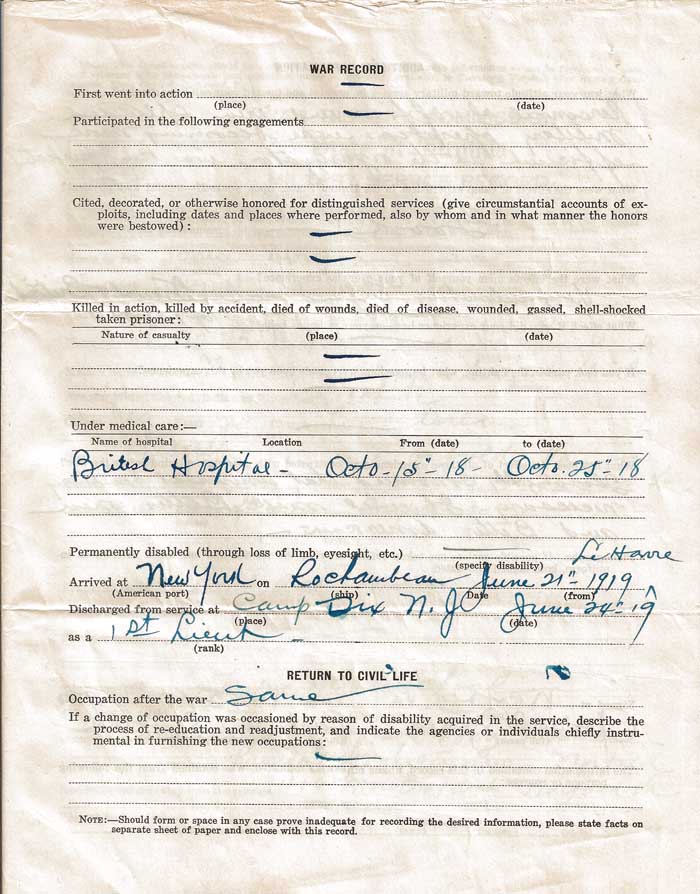 WAR RECORD
First went into action
(place) (date)
Participated in the following engagements
Cited, decorated, or otherwise honored for distinguished services (give circumstantial accounts of ex-
ploits, including dates and places where performed, also by whom and in what manner the honors
were bestowed) :
Killed in action, killed by accident, died of wounds, died of disease, wounded, gassed, shell-shocked
taken prisoner :
Nature of casualty (place) (date)
Under medical care:—
Name of hospital Location From (date) to (date)
British Hospital - Octo - 15" - 18 - Octo. 25" - 18
Permanently disabled (through loss of limb, eyesight, etc.)
(specify disability) Le Havre
Arrived at New York on Rochambeau June 21" 1919
(American port) (ship) Date (from)
Discharged from service at Camp Dix N. J. June 24" 19
(place) (date)
as a 1st Lieut -
(rank)
RETURN TO CIVIL LIFE
Occupation after the war Same
If a change of occupation was occasioned by reason of disability acquired in the service, describe the
process of re-education and readjustment, and indicate the agencies or individuals chiefly instru-
mental in furnishing the new occupations :
NOTE:—Should form or space in any case prove inadequate for recording the desired information, please state facts on
separate sheet of paper and enclose with this record.